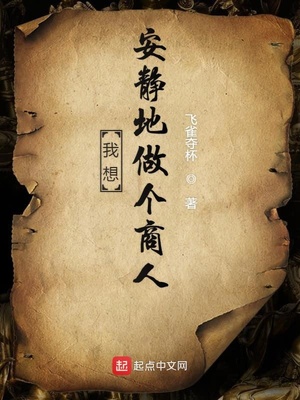 我想
安静地做个商人
飞雀夺杯 ◎ 著
起 起点中文网